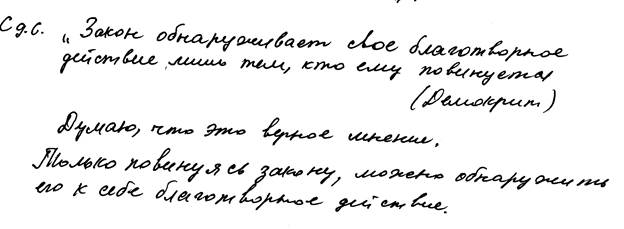 Сд.С. „Закон обнаруживает свое благотворное
действие лишь тем, кто ему повинуется
(Демокрит)
Думаю, что это верное мнение.
Только повинуясь закону, можно обнаружить
его к себе благотворное действие.